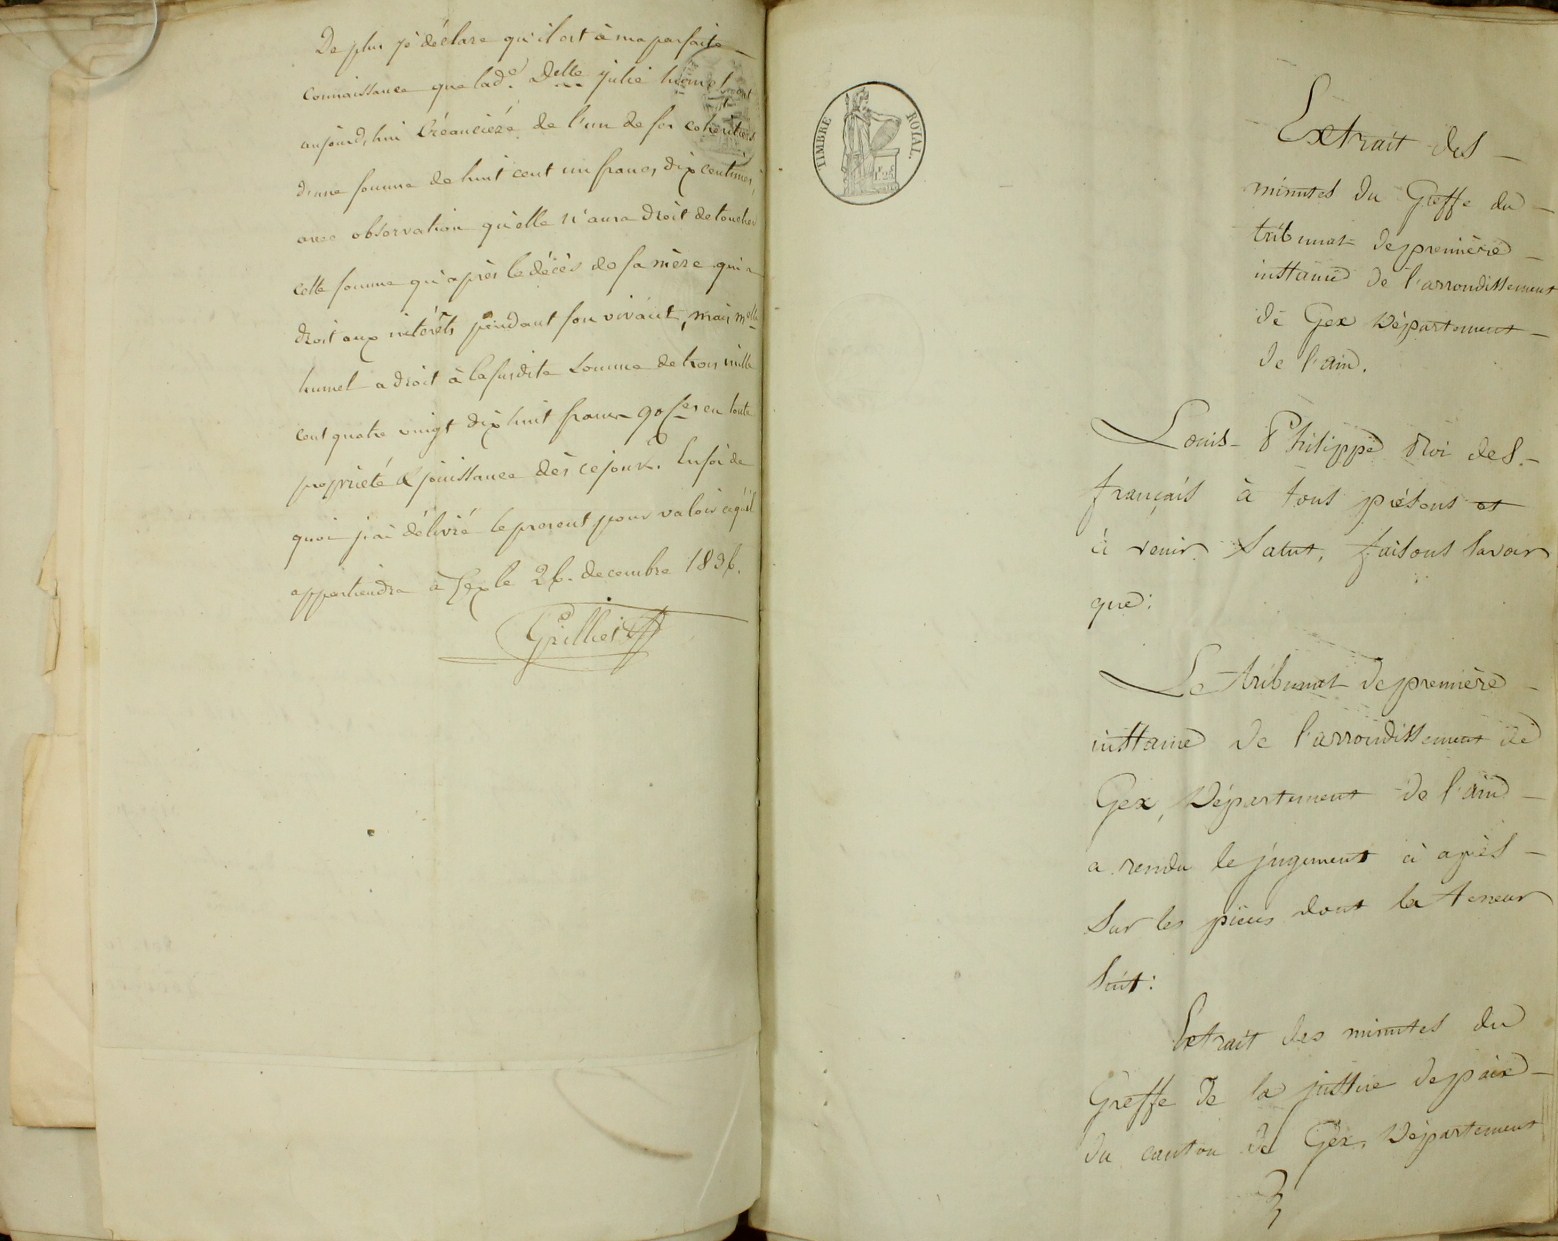 De plus je déclare qu'il est à ma parfaite
connaissance que lad.e Delle julie humel est
aujourd,hui Créancière de l'un de ses cohéritiers
d'une somme de huit cent un francs dix centimes,
avec observation qu'elle n'aura droit de toucher
cette somme qu'après le décès de sa mère qui a
droit aux intérêts pendant son vivant, mais melle
humel a droit à la susdite Somme de trois mille
cent quatre vingt dix huit francs 90 ces en toute
propriété & jouissance dès ce jour. En foi de
quoi j'ai délivré le present pour valoir ce qu'il
appartiendra à Gex le 26. decembre 1836.
Grilliet
TIMBRE ROYAL.
Extrait des —
minutes du Greffe du —
tribunal de première —
instance de l'arrondissement
de Gex Département —
de l'ain.
Louis-Philippe Roi des —
français à tous présens et
à venir Salut, faisons savoir
que:
Le tribunal de première —
instance de l'arrondissement de
Gex, Département de l'ain —
a rendu le jugement ci après —
Sur les pièces dont la teneur
Suit:
Extrait des minutes du
Greffe de la justice de paix —
du canton de Gex, Département